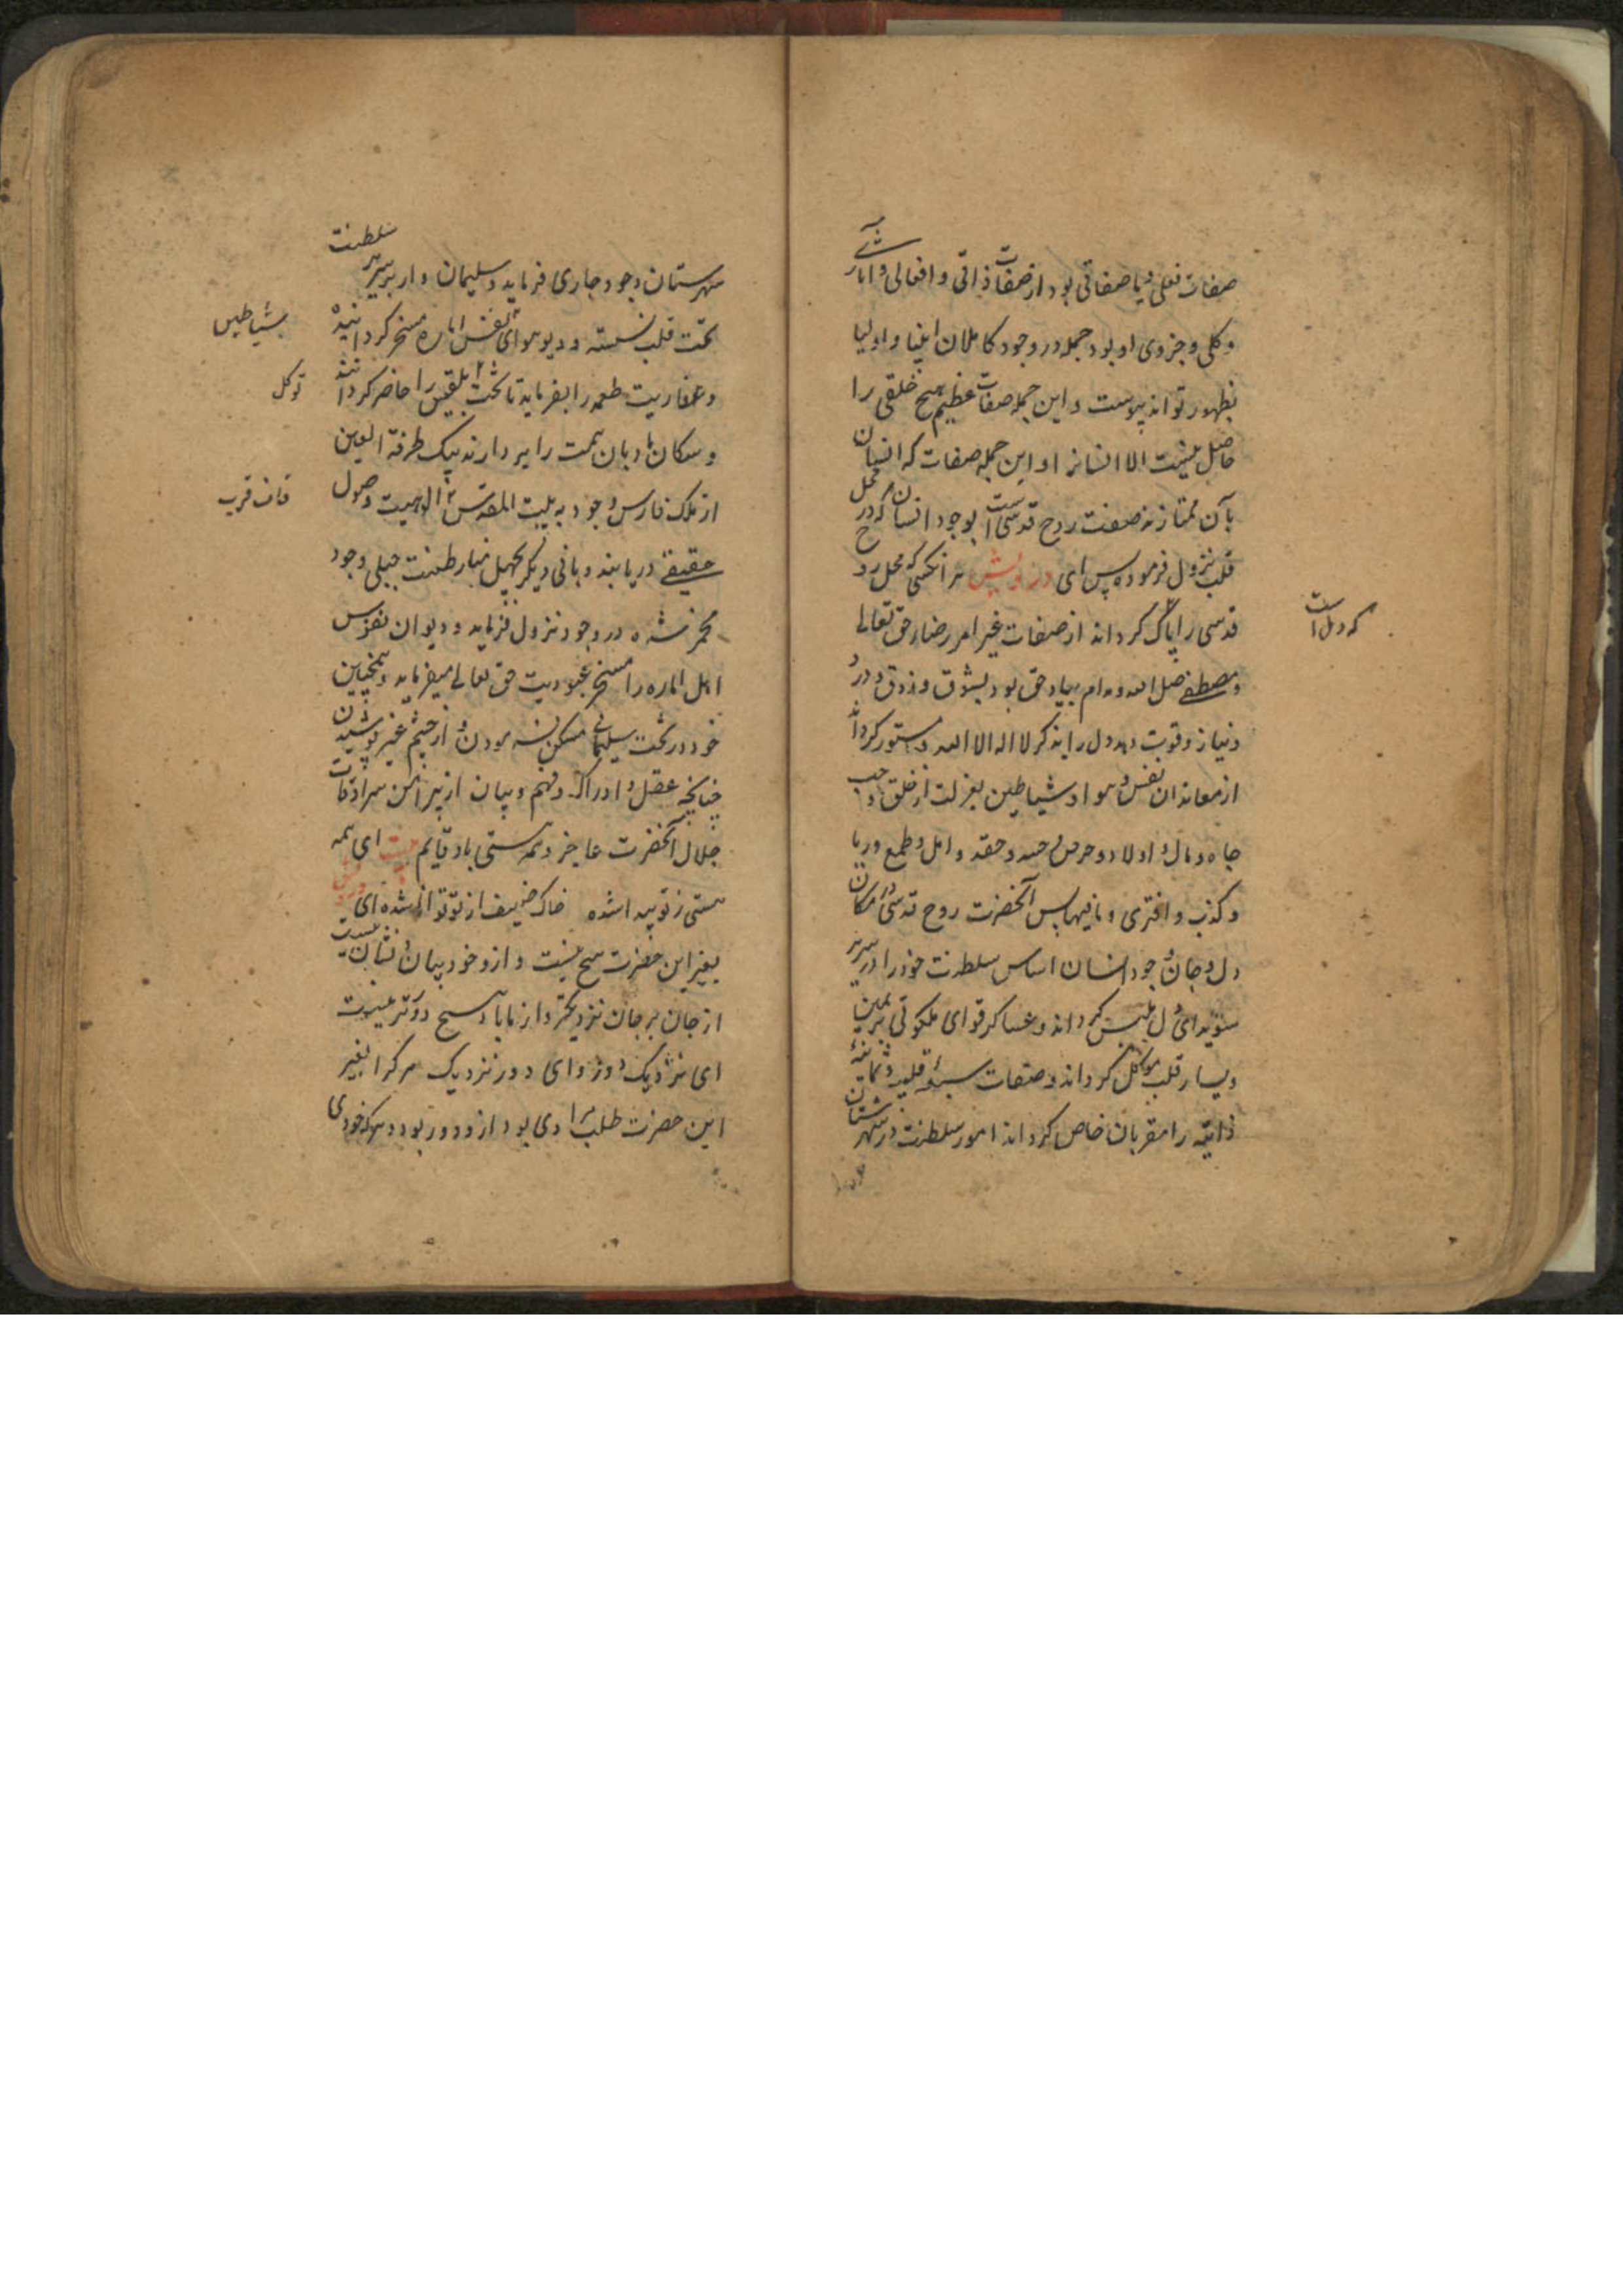 صفات فعلی و یا صفاتی بود از صفات ذاتی و افعالی و آثاری
و کلی و جزوی او بود جمله در وجود کاملان انبیا و اولیا
بظهور تواند پیوست و این جمله صفات عظیم هیچ خلقی را
حاصل نیست الا انسانرا و این جمله صفات که انسان
بآن ممتاز نه صفت روح قدسی است بوجود انسان که در محل
قلب نزول فرموده پس ای درویش هر انکسی که محل روح
قدسی را پاک کرداند از صفات غیر امر رضاء حق تعالی
که دل است
و مصطفی صلی الله و مدام بیاد حق بود بشوق و ذوق و درد
و نیاز و قوت دهد دل را بذکر لا اله الا الله و مستور کرداند
از معاندان نفس و هوا و شیاطین بعزلت از خلق و حب
جاه و مال و اولاد و حرص و حسد و حقد و امل و طمع و ریا
و کذب و افتری و مافیها پس آنحضرت روح قدسی در مکان
دل و جان وجود انسان اساس سلطنت خود را در سریر
سویدای دل کرداند و عساکر قوای ملکوتی بر یمین
و یسار قلب موکل کرداند و صفات سبعه قلبیه و ثمانیه
ذاتیه را مقربان خاص کرداند امور سلطنت در شهرستان
شهرستان وجود جاری فرماید و سلیمان وار بر سریر سلطنت
تخت قلب نشسته و دیو هوای نفس اماره مسخر کردانیده
بشیاطین
و عفاریت طمعه را بفرماید تا تخت بلقیس را حاضر کردانند
توکل
و سکان بادبان همت را بردارند بیک طرفة العین
از ملک فارس وجود به بیت المقدس الوهیت وصول
قاف قرب
حقیقی دریابند و بانی دیکر بچهل نهار طینت جبلی وجود
مخمر شده در وجود نزول فرماید و دیوان نفوس
اهل اماره را مسخر عبودیت حق تعالی میفرماید و همچنین
خود در تخت سلیمانی مسکن نمودن و از چشم غیر پوشیدن
چنانچه عقل و ادراک و فهم و بیان از پیرامن سرادقات
جلال آنحضرت عاجز و همه هستی باو قایم بیت ای همه
هستی ز تو پیدا شده خاک ضعیف از تو توانا شده ای درویش
بغیر این حضرت هیچ نیست و از وجود بیان و نشان نیست
از جان بر جان نزدیکتر و از ما با ما هیچ دورتر نیست
ای نزدیک دور و ای دور نزدیک هر کرا بغیر
این حضرت طلب مرادی بود ازو دور بود و هر که خودی